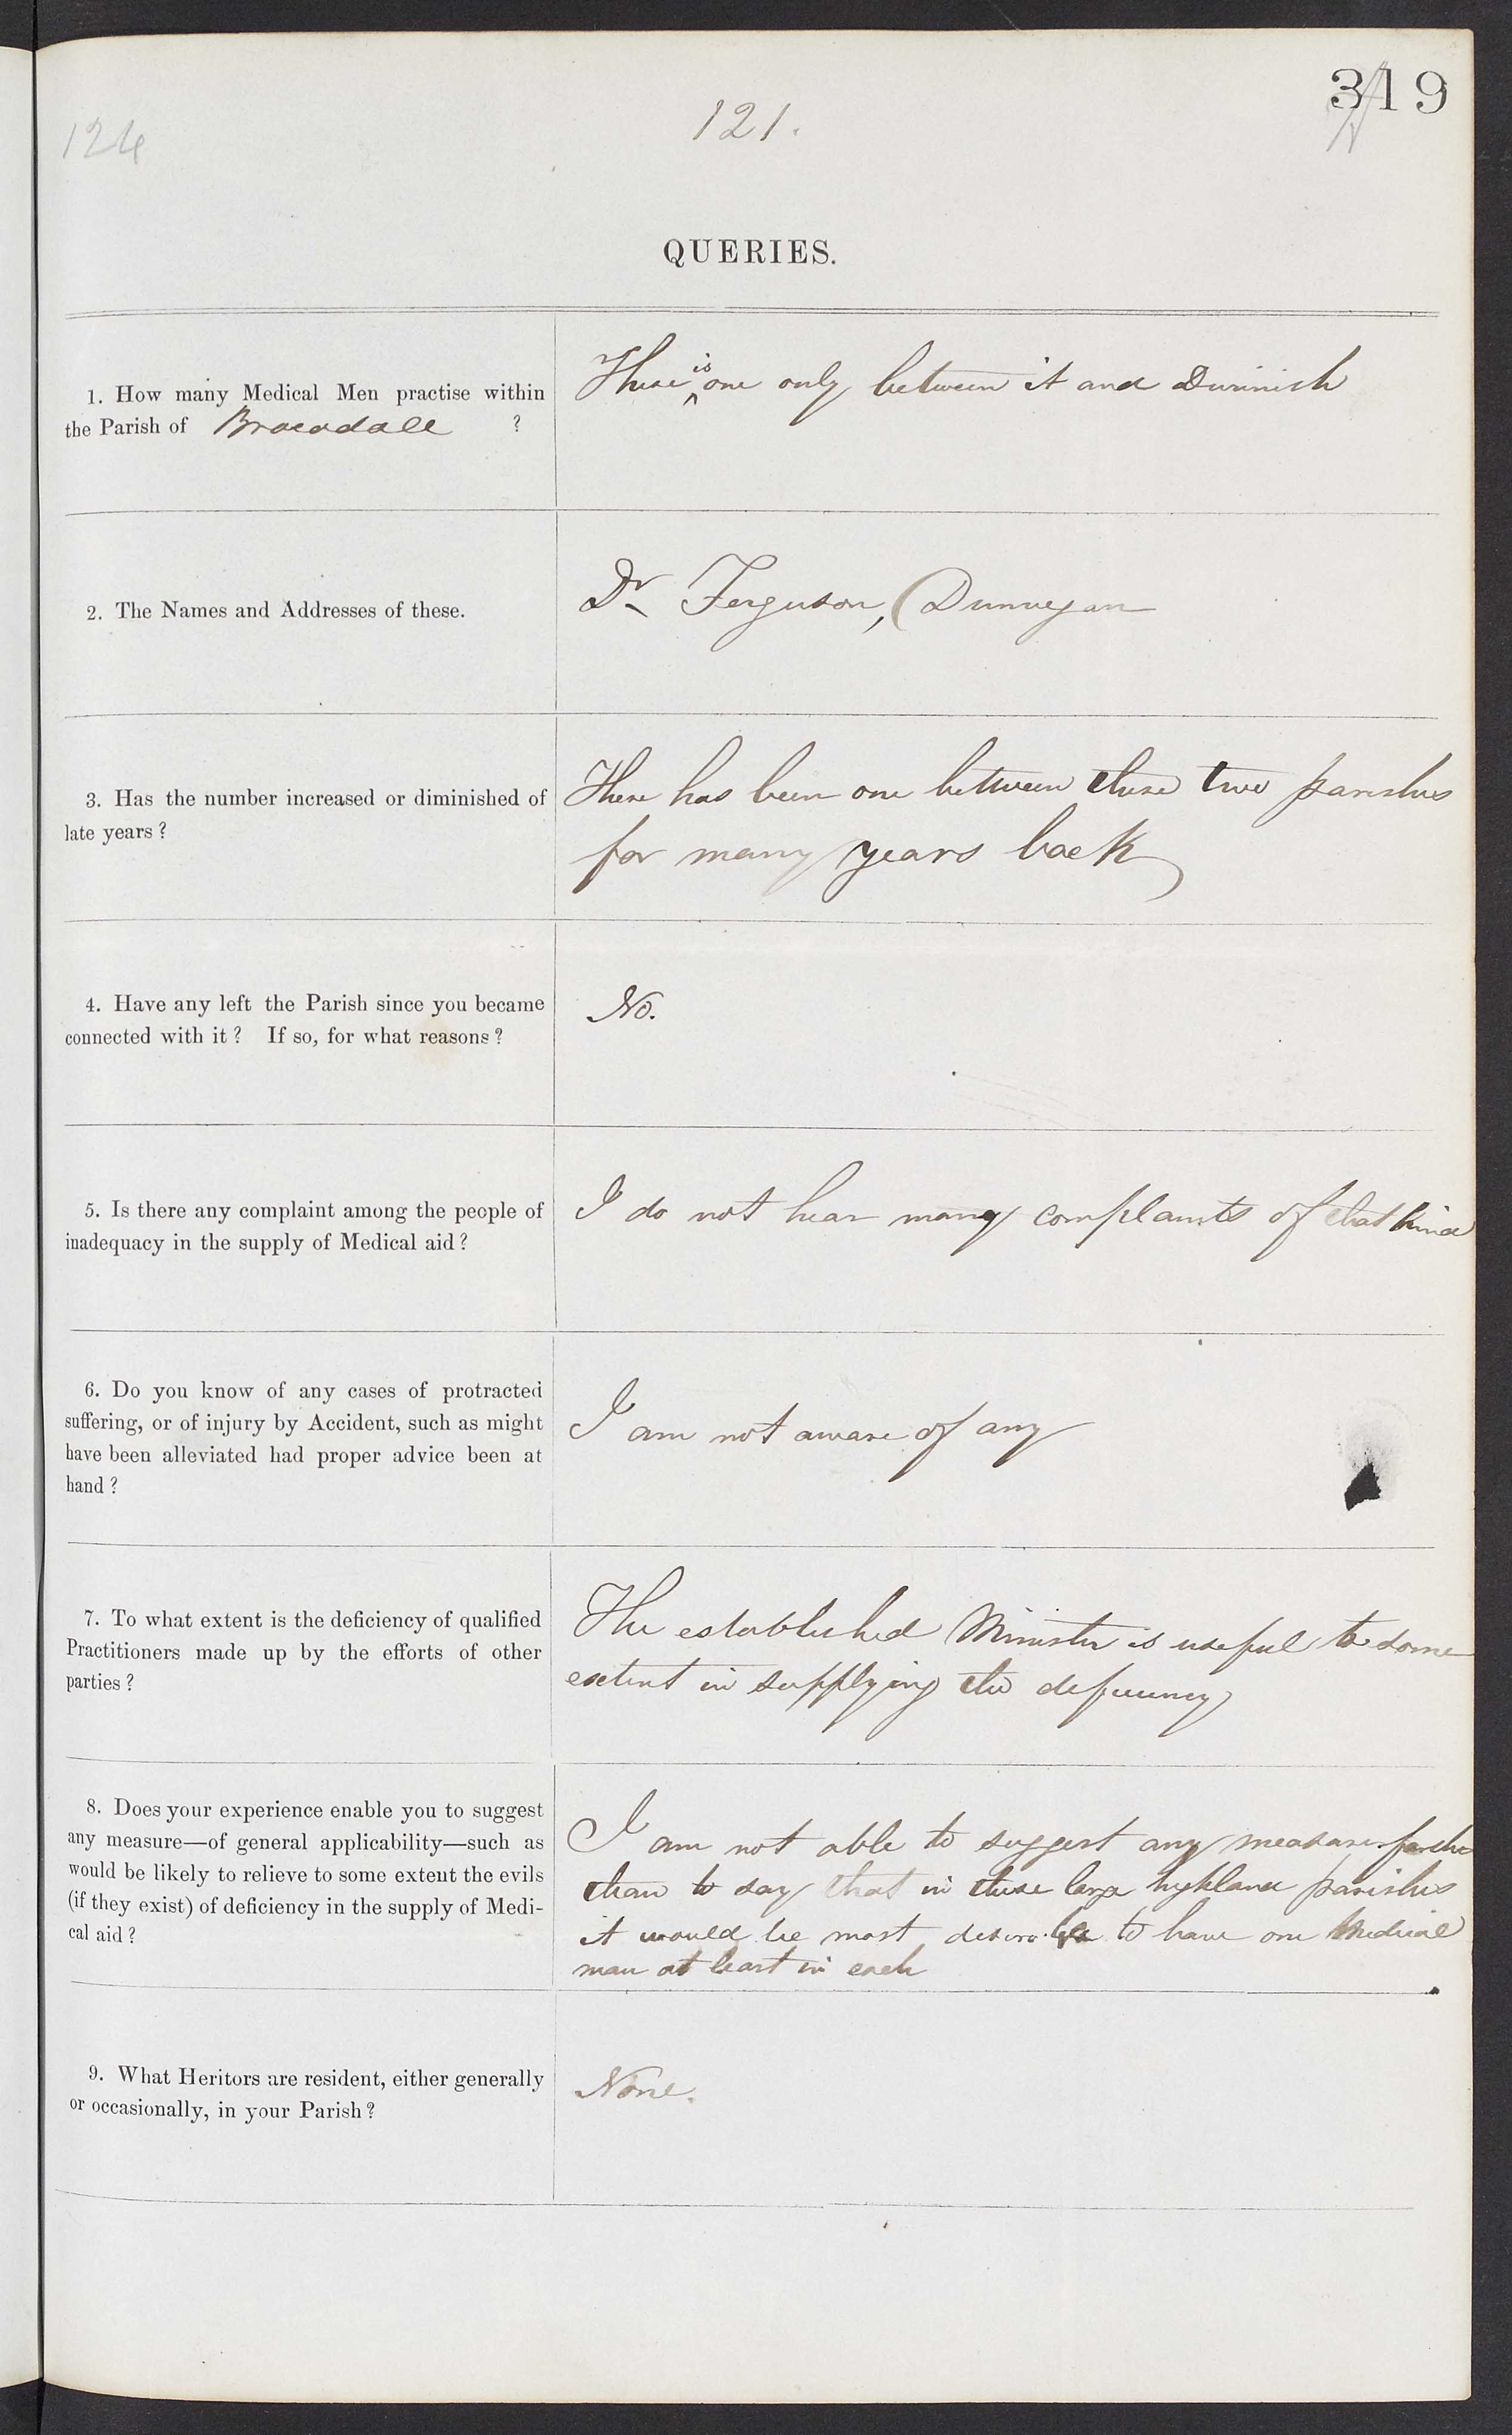 319
121.
124
QUERIES.
1. How many Medical Men practise within
the Parish of Bracadale ?
There is one only between it and Duirinish
2. The Names and Addresses of these.
Dr Ferguson, Dunvegan
3. Has the number increased or diminished of
late years?
There has been one between these two parishes
for many years back
4. Have any left the Parish since you became
connected with it? If so, for what reasons?
No.
5. Is there any complaint among the people of
inadequacy in the supply of Medical aid?
I do not hear many complaints of that kind
6. Do you know of any cases of protracted
suffering, or of injury by Accident, such as might
have been alleviated had proper advice been at
hand?
I am not aware of any
7. To what extent is the deficiency of qualified
Practitioners made up by the efforts of other
parties?
The established Minister is useful to some
extent in supplying the deficiency
8. Does your experience enable you to suggest
any measure—of general applicability—such as
would be likely to relieve to some extent the evils
(if they exist) of deficiency in the supply of Medi-
cal aid?
I am not able to suggest any measure further
than to say that in these large highland parishes
it would be most desirable to have one Medical
man at least in each
9. What Heritors are resident, either generally
or occasionally, in your Parish?
None.